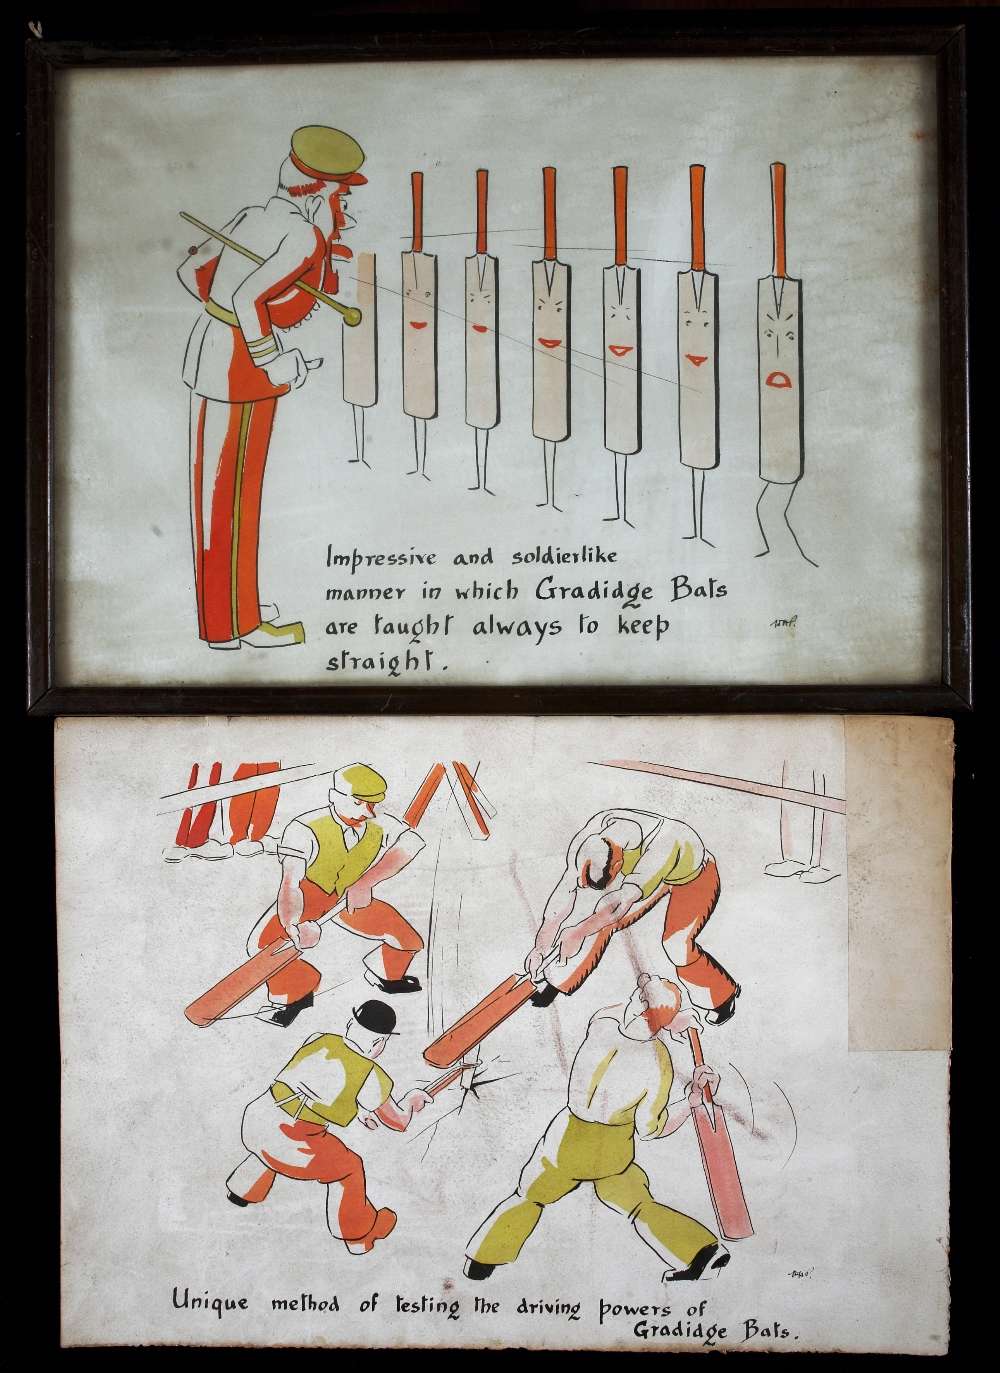 Impressive and soldierlike
manner in which Gradidge Bats
are taught always to keep
straight.
Unique method of testing the driving powers of
Gradidge Bats.